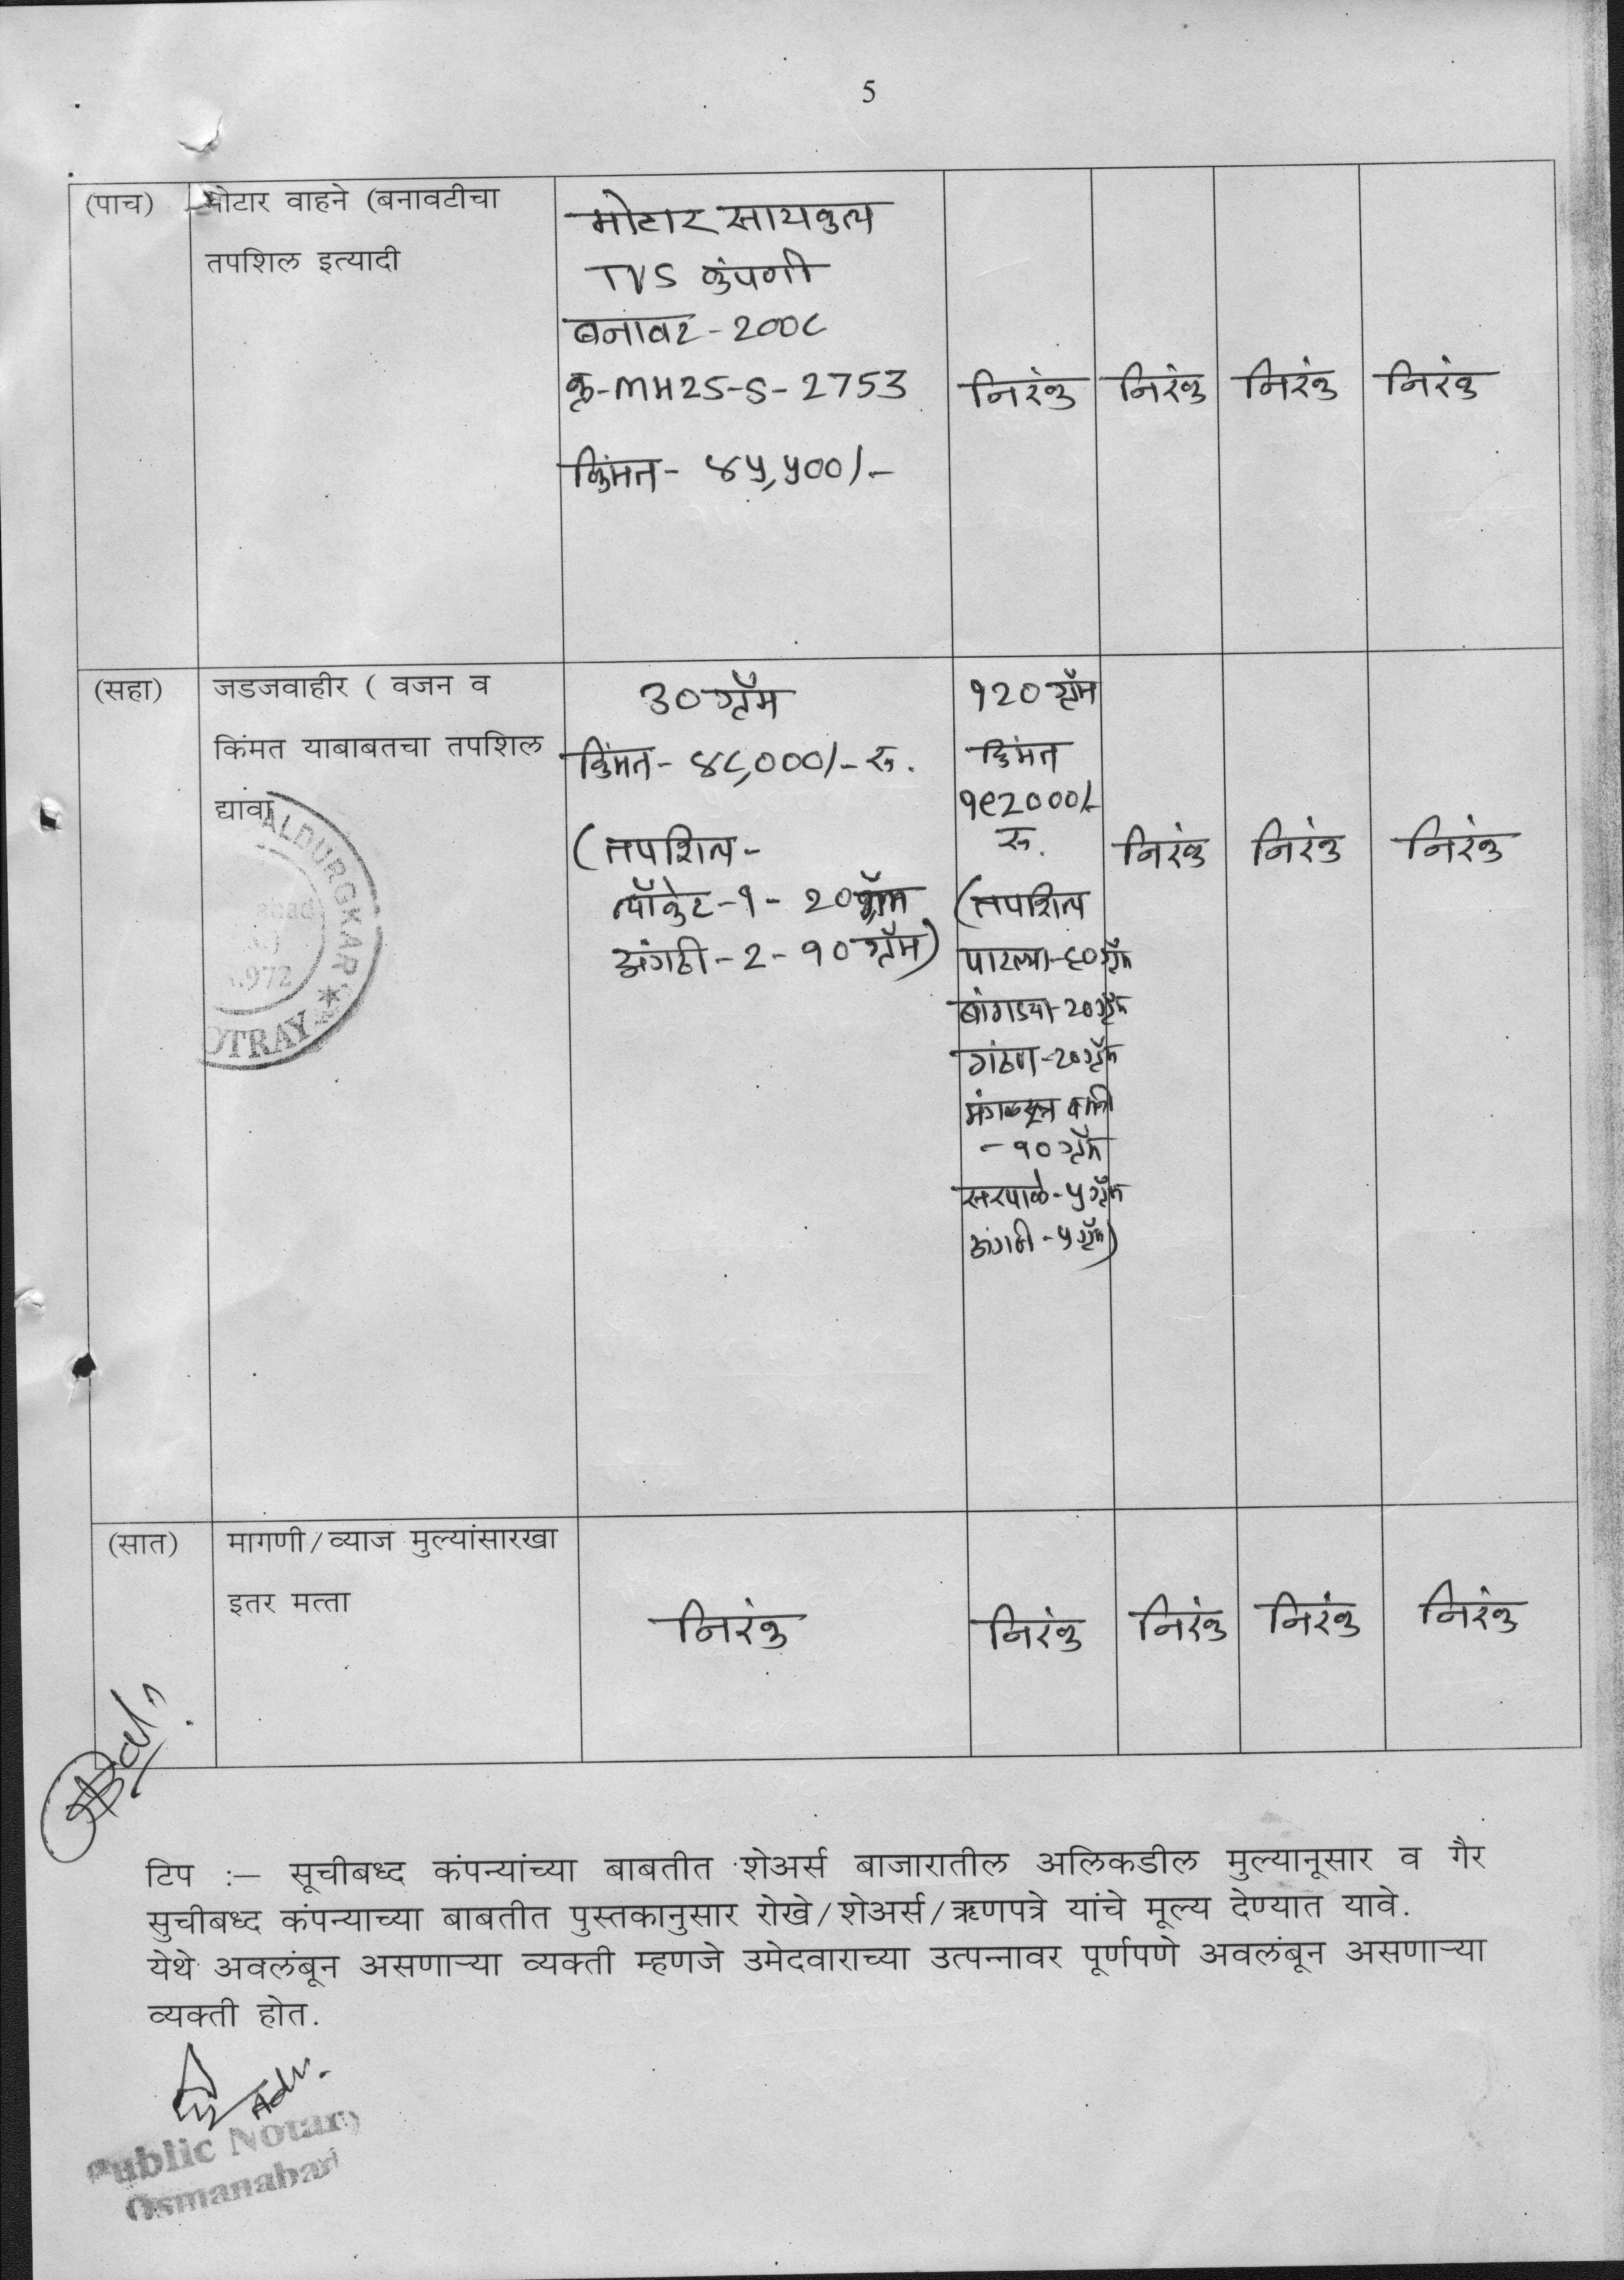 5
(पाच)
मोटार वाहने (बनावटीचा
तपशिल इत्यादी
मोटार सायकल
TVS कंपणी
बनावट - 200८
क्र-MH25-S-2753
किंमत - ४५,५00/-
निरंक
निरंक
निरंक
निरंक
(सहा)
जडजवाहीर ( वजन व
किंमत याबाबतचा तपशिल
द्यावा
30 ग्रॅम
किंमत - ४८,000/- रु.
(तपशिल -
लॉकेट - १ - 20 ग्रॅम
अंगठी - 2 - १0 ग्रॅम)
१20 ग्रॅम
किंमत
१९2000/-
रु.
(तपशिल
पाटल्या-६0 ग्रॅम
बांगडया-20 ग्रॅम
गंठण-20 ग्रॅम
मंगळसूत्र
- १0 ग्रॅम
सरपाळे - ५ ग्रॅम
अंगठी - ५ ग्रॅम)
निरंक
निरंक
निरंक
ALDURGKAR
abad
.972
OTRAY
(सात)
मागणी/व्याज मुल्यांसारखा
इतर मत्ता
निरंक
निरंक
निरंक
निरंक
निरंक
टिप :– सूचीबध्द कंपन्यांच्या बाबतीत शेअर्स बाजारातील अलिकडील मुल्यानूसार व गैर
सुचीबध्द कंपन्याच्या बाबतीत पुस्तकानुसार रोखे/शेअर्स/ऋणपत्रे यांचे मूल्य देण्यात यावे.
येथे अवलंबून असणाऱ्या व्यक्ती म्हणजे उमेदवाराच्या उत्पन्नावर पूर्णपणे अवलंबून असणाऱ्या
व्यक्ती होत.
Adv.
Public Notary
Osmanabad